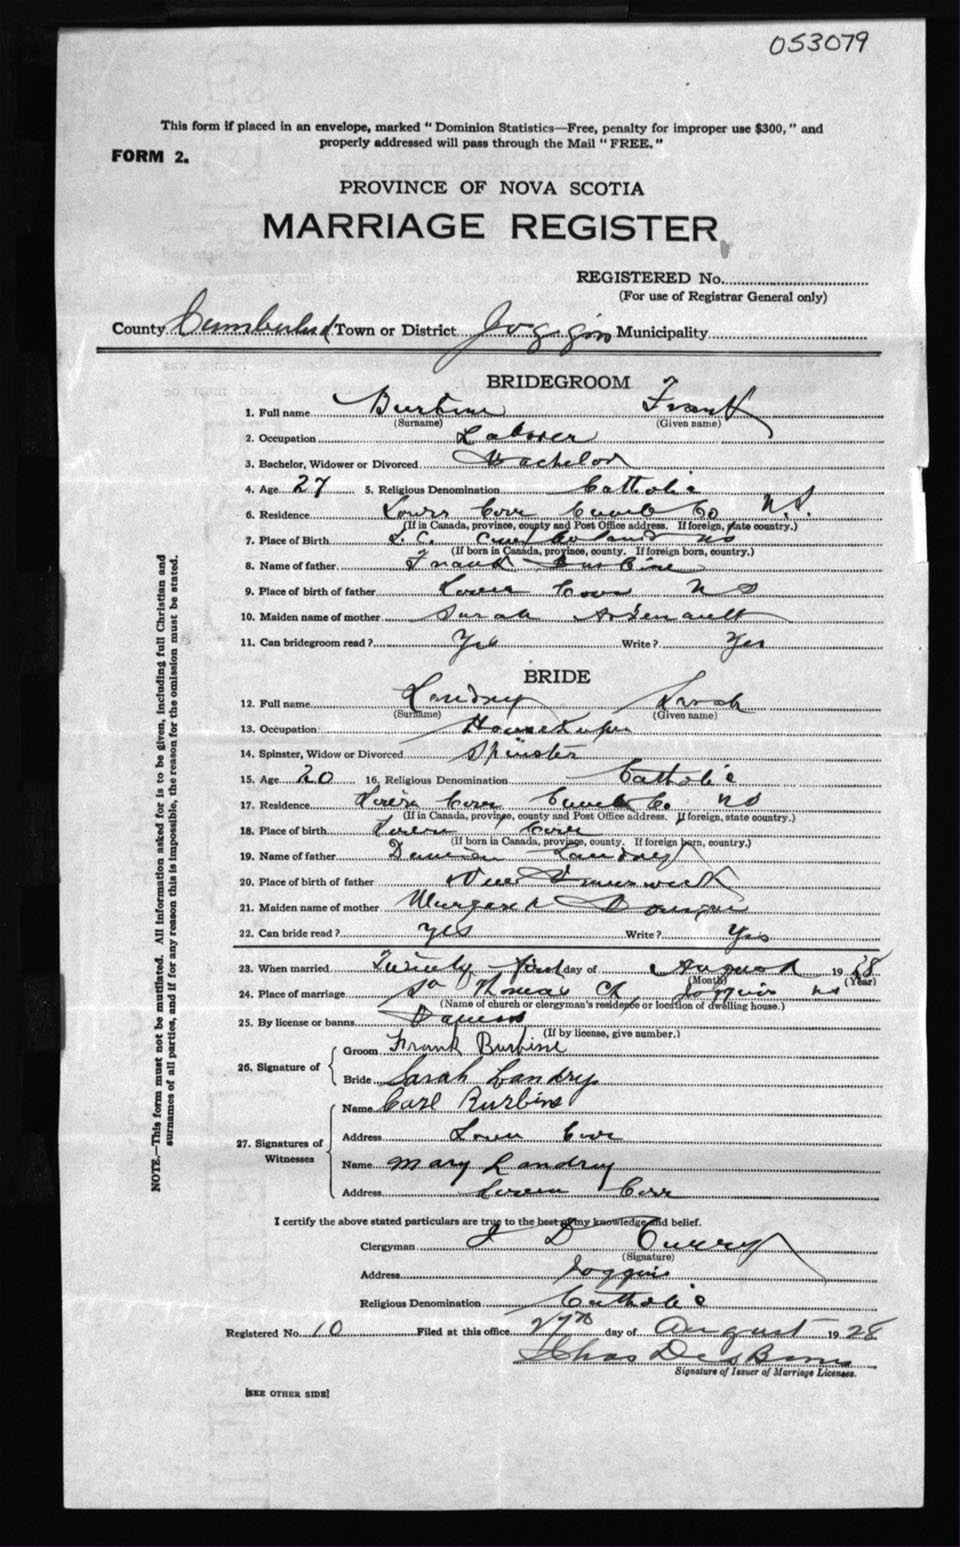 053079
This form if placed in an envelope, marked "Dominion Statistics—Free, penalty for improper use $300," and
properly addressed will pass through the Mail "FREE."
FORM 2.
PROVINCE OF NOVA SCOTIA
MARRIAGE REGISTER
REGISTERED No.
(For use of Registrar General only)
County Cumberland Town or District Joggins Municipality
BRIDEGROOM
1. Full name Burbine Frank
(Surname) (Given name)
2. Occupation Laborer
3. Bachelor, Widower or Divorced Bachelor
4. Age 27 5. Religious Denomination Catholic
6. Residence Lower Cove Cumb Co N.S.
(If in Canada, province, county and Post Office address. If foreign, state country.)
7. Place of Birth L. C. NS
(If born in Canada, province, county. If foreign born, country.)
8. Name of father Frank Burbine
9. Place of birth of father Lower Cove NS
10. Maiden name of mother Sarah Arsenault
11. Can bridegroom read? Yes Write? Yes
BRIDE
12. Full name Landry Sarah
(Surname) (Given name)
13. Occupation Housekeeper
14. Spinster, Widow or Divorced Spinster
15. Age 20 16. Religious Denomination Catholic
17. Residence Lower Cove Cumb Co. NS
(If in Canada, province, county and Post Office address. If foreign, state country.)
18. Place of birth Lower Cove
(If born in Canada, province, county. If foreign born, country.)
19. Name of father Landry
20. Place of birth of father New Brunswick
21. Maiden name of mother Margaret
22. Can bride read? Yes Write? Yes
23. When married Twenty first day of August 1928
(Month) (Year)
24. Place of marriage St Thomas Ch, Joggins NS
(Name of church or clergyman's residence or location of dwelling house.)
25. By license or banns
(If by license, give number.)
26. Signature of
Groom Frank Burbine
Bride Sarah Landry
27. Signatures of Witnesses
Name Carl Burbine
Address Lower Cove
Name Mary Landry
Address Lower Cove
I certify the above stated particulars are true to the best of my knowledge and belief.
Clergyman J D Curry
(Signature)
Address Joggins
Religious Denomination Catholic
Registered No. 10 Filed at this office 27th day of August 1928
Chas DesBarres
Signature of Issuer of Marriage Licenses.
[SEE OTHER SIDE]
NOTE.—This form must not be mutilated. All information asked for is to be given, including full Christian and
surnames of all parties, and if for any reason this is impossible, the reason for the omission must be stated.